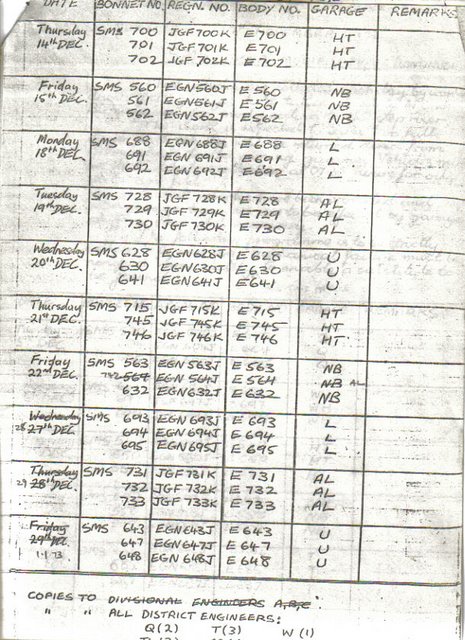 DATE BONNET NO. REGN. NO. BODY NO. GARAGE REMARKS
Thursday SMS 700 JGF 700K E 700 HT
14th DEC. 701 JGF 701K E 701 HT
702 JGF 702K E 702 HT
Friday SMS 560 EGN 560J E 560 NB
15th DEC. 561 EGN 561J E 561 NB
562 EGN 562J E 562 NB
Monday SMS 688 EGN 688J E 688 L
18th DEC. 691 EGN 691J E 691 L
692 EGN 692J E 692 L
Tuesday SMS 728 JGF 728K E 728 AL
19th DEC. 729 JGF 729K E 729 AL
730 JGF 730K E 730 AL
Wednesday SMS 628 EGN 628J E 628 U
20th DEC. 630 EGN 630J E 630 U
641 EGN 641J E 641 U
Thursday SMS 715 JGF 715K E 715 HT
21st DEC. 745 JGF 745K E 745 HT
746 JGF 746K E 746 HT
Friday SMS 563 EGN 563J E 563 NB
22nd DEC. 564 EGN 564J E 564 NB AL
632 EGN 632J E 632 NB
Wednesday SMS 693 EGN 693J E 693 L
28 27th DEC 694 EGN 694J E 694 L
695 EGN 695J E 695 L
Thursday SMS 731 JGF 731K E 731 AL
29 28th DEC. 732 JGF 732K E 732 AL
733 JGF 733K E 733 AL
Friday SMS 643 EGN 643J E 643 U
29th DEC. 647 EGN 647J E 647 U
1-1-73 648 EGN 648J E 648 U
COPIES TO DIVISIONAL ENGINEERS A,B,C:
" " ALL DISTRICT ENGINEERS:
Q(2) T(3) W(1)